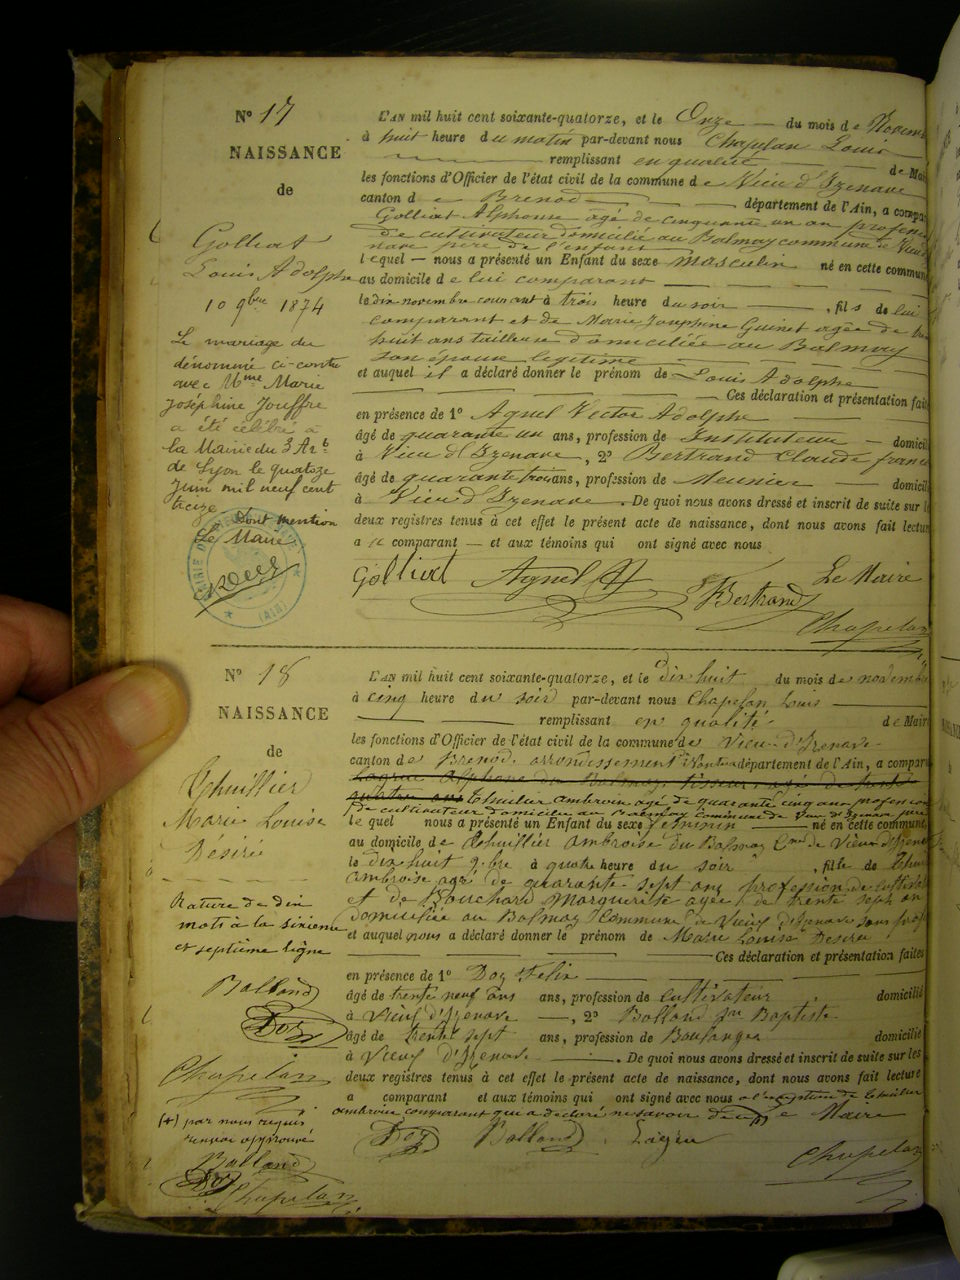 N° 17
NAISSANCE
de
Golliat
Louis Adolphe
10 9bre 1874
Le mariage du
dénommé ci-contre
avec Mme Marie
Joséphine Jouffre
a été célébré à
la Mairie du 3 Art
de Lyon le quatoze
Juin mil neuf cent
treize Dont mention
Le Maire
L'AN mil huit cent soixante-quatorze, et le Onze du mois de Novem
à huit heure du matin par-devant nous Chapelan Louis
remplissant en qualité de Mai
les fonctions d'Officier de l'état civil de la commune de Vieu d'Izenave
canton de Brenod département de l'Ain, a compa
Golliat Alphonse agé de cinquante un an profess
de cultivateur domicilié au Balmay commune de Vieu
nave père de l'enfant
lequel nous a présenté un Enfant du sexe masculin né en cette commun
au domicile de lui comparant
le dix novembre courant à trois heure du soir, fils de lui
comparant et de Marie Josephine Guinet agée de
huit ans tailleuse domiciliée au Balmay
son épouse légitime
et auquel il a déclaré donner le prénom de Louis Adolphe
Ces déclaration et présentation fait
en présence de 1° Agnel Victor Adolphe
âgé de quarante un ans, profession de Instituteur domicil
à Vieu d'Izenave, 2° Bertrand Claude franc
âgé de quarante trois ans, profession de Meunier domicil
à Vieu d'Izenave. De quoi nous avons dressé et inscrit de suite sur l
deux registres tenus à cet effet le présent acte de naissance, dont nous avons fait lectur
a le comparant et aux témoins qui ont signé avec nous
Golliat Agnel Bertrand Le Maire
Chapelan
N° 18
NAISSANCE
de
Lhuillier
Marie Louise
Désiré
Rature de dix
mots à la sixieme
et septième ligne
Balland
Doz
Chapelan
(+) par nous requis
renvoi approuvé
Balland
Doz
Chapelan
L'AN mil huit cent soixante-quatorze, et le dix huit du mois de novembre
à cinq heure du soir par-devant nous Chapelan Louis
remplissant en qualité de Mair
les fonctions d'Officier de l'état civil de la commune de Vieu-d'Izenave
canton de Brenod arrondissement Nantua département de l'Ain, a compar
Lhuilier Ambroise agé de quarante cinq ans profession
de cultivateur domicilié au Balmay commune de Vieu d'Izenave père
le quel nous a présenté un Enfant du sexe feminin né en cette commune
au domicile de Lhuillier Ambroise du Balmay Cne de Vieux d'Izenave
le dix huit 9bre à quatre heure du soir, fille de Lhui
Ambroise agé de quarante-sept ans profession de cultivat
et de Bouchard Marguerite agée de trente sept an
domiciliée au Balmay Commune de Vieux d'Izenave sans prof
et auquel nous a déclaré donner le prénom de Marie Louise Desiré
Ces déclaration et présentation faites
en présence de 1° Doz Felix
âgé de trente neuf ans ans, profession de cultivateur domicilié
à Vieux d'Izenave, 2° Balland Jn Baptiste
âgé de trente sept ans, profession de Boulanger domicilié
à Vieux d'Izenave. De quoi nous avons dressé et inscrit de suite sur les
deux registres tenus à cet effet le présent acte de naissance, dont nous avons fait lecture
a comparant et aux témoins qui ont signé avec nous a l'exception de Lhuilier
ambroise comparant qui a déclaré ne savoir Le Maire
Doz Balland
Chapelan